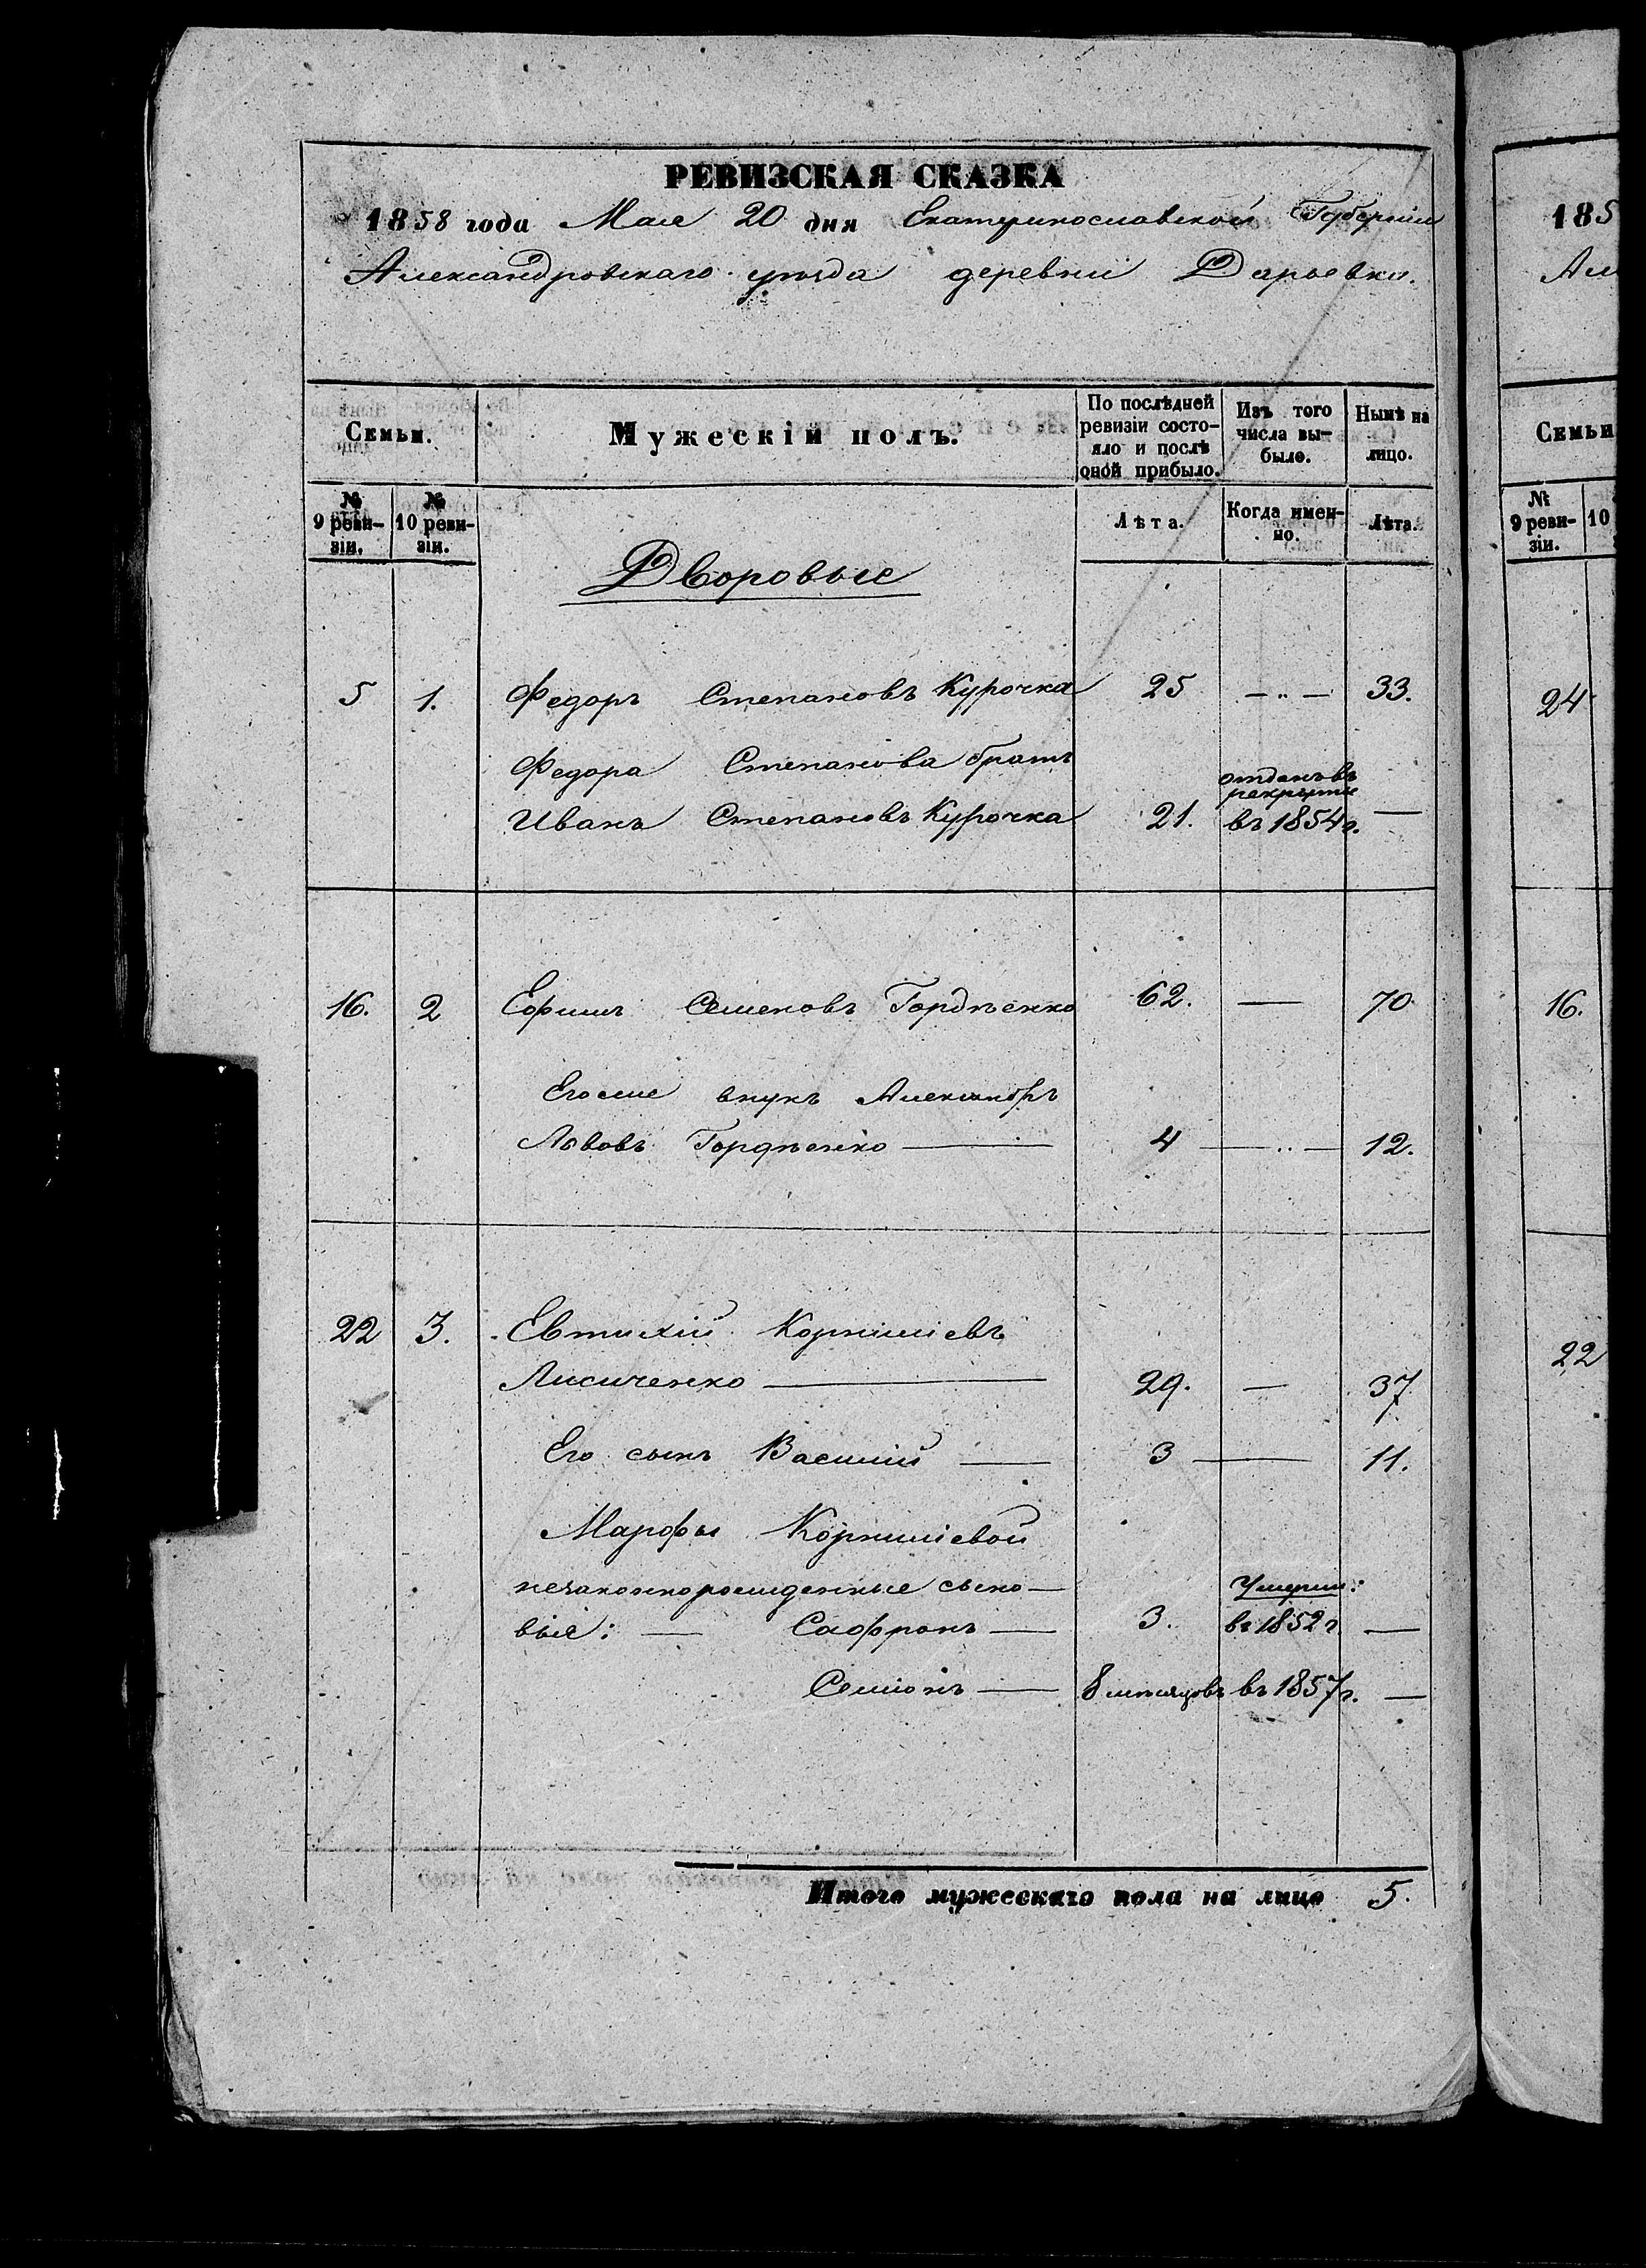 РЕВИЗСКАЯ СКАЗКА
1858 года Мая 20 дня Екатеринославской Губерніи
Александровскаго уѣзда деревни Дарьевки.
Семьи.
Мужескій полъ.
По послѣдней
ревизіи состо-
яло и послѣ
оной прибыло.
Изъ того
числа вы-
было.
Нынѣ на
лицо.
№
9 реви-
зіи.
№
10 реви-
зіи.
Лѣта.
Когда имен-
но.
Лѣта.
Дворовые
5 1. Федоръ Степановъ Курочка 25 — „ — 33.
Федора Степанова братъ
отданъ въ
рекруты
Иванъ Степановъ Курочка 21. въ 1854 г. —
16. 2 Ефимъ Семеновъ Гордѣенко 62. — 70
Егоже внукъ Александръ
Львовъ Гордѣенко — 4 — „ — 12.
22 3. Евтихій Корниліевъ
Лисиченко — 29. — 37
Его сынъ Василій — 3 — 11.
Марфы Корниліевой
незаконнорожденные сыно-
Умерли:
вія: — Сафронъ — 3. въ 1852 г. —
Семіонъ — 8 мѣсяцовъ въ 1857 г. —
Итого мужескаго пола на лицо 5.
185
Ал
Семьи
№
9 реви-
зіи.
10
24
16.
22